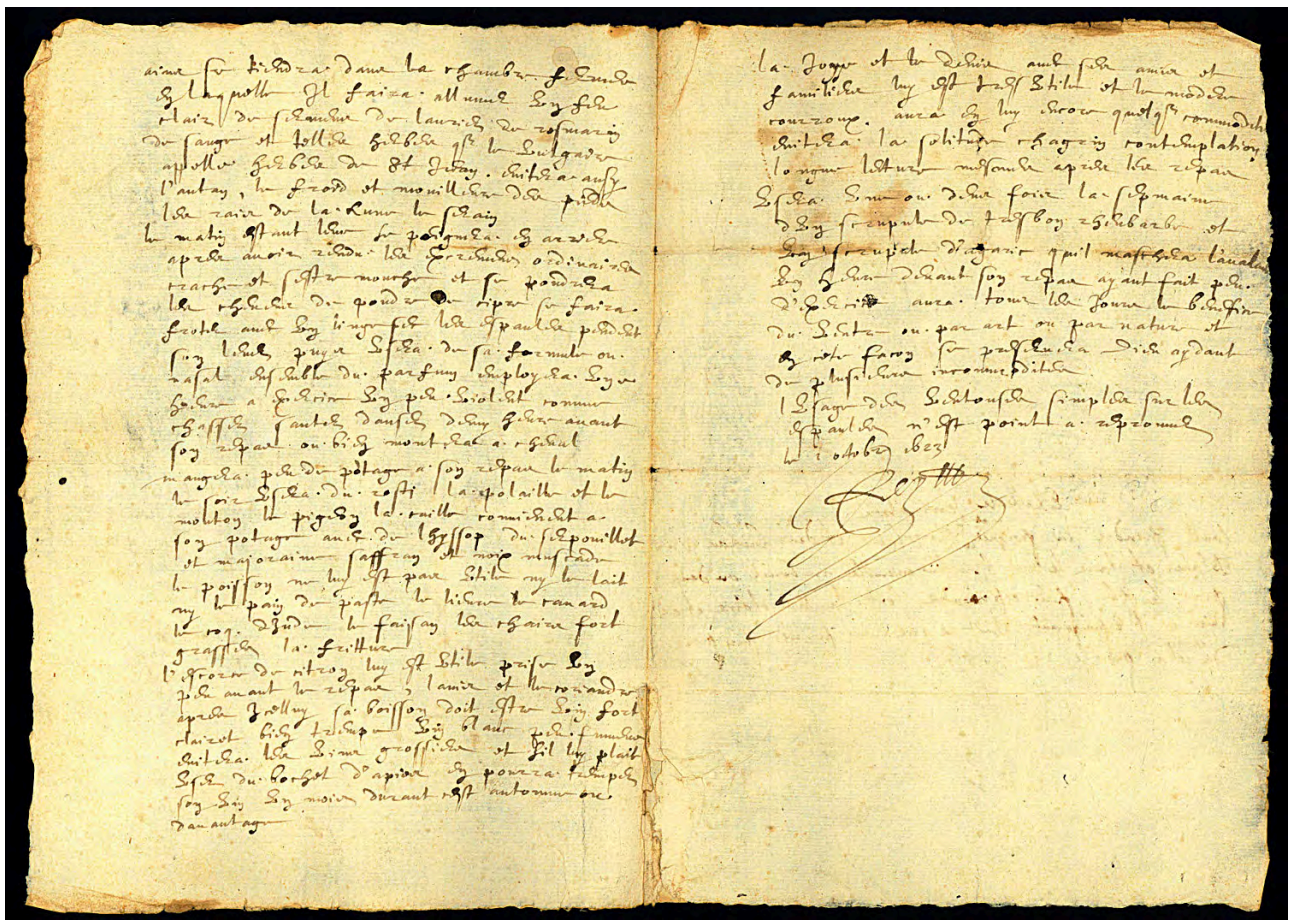 aime se tiendra dans la chambre fermee
en laquelle Il faira allumer Un feu
clair de serment de laurier de rosmarin
de sauge et telles herbes que le Vulgaire
appelle herbes de St Jean. euitera aussy
l'autan, le froid et mouilleure des pieds
les rais de la Lune le serain
le matin estant leué se peignera en arriere
apres auoir rendu les excremens ordinaires
craché et s'estre mouché et se poudrera
les cheueux de poudre de cipre se faira
froter auec Un linge sec les espaules pendent
son leuer puys Usera de sa formule ou
nasal ensemble du parfum employera Une
heure a exercice Un peu Violent comme
chasser sauter danser demy heure auant
son repas ou bien montera a cheual
mangera peu de potage a son repas le matin
le soir Usera du rosti la polaille et le
mouton le pigeon la caille conuienent a
son potage auec de lhyssop du serpouillet
et majoraine saffran et noix muscade
le poisson ne luy est pas Utile ny le lait
ny le pain de paste le lieure le canard
le coq d'Inde le faisan les chairs fort
grasses la fritture
l'escorce de citron luy est Utile prise Un
peu auant le repas, lanis et le coriandre
apres Icelluy sa boisson doit estre Vin fort
clairet bien trempé Vin blanc peu fumeux
euitera les Vins grossiers et s'il luy plait
User du bochet d'apier en pourra tremper
son Vin Un mois durant cest automne ou
dauantage
la Joye et le deuis auec ses amis et
familiers luy est tres Utile et le moderé
courroux. aura en luy encore quelque commodité
euitera la solitude chagrin contemplation
longue leture mesmes apres les repas
Usera Une ou deux fois la sepmaine
d'Un scrupule de tresbon rheubarbe et
Un scrupule d'agaric quil maschera l'aualant
Un heure deuant son repas ayant fait peu
d'exercice aura tous les Jours le benefice
du Ventre ou par art ou par nature et
en cete facon se preseruera Dieu aydant
de plusieurs incommodites
l'Usage des Ventouses simples sur les
espaules n'est point a reprouuer
le 2 octobre 1623